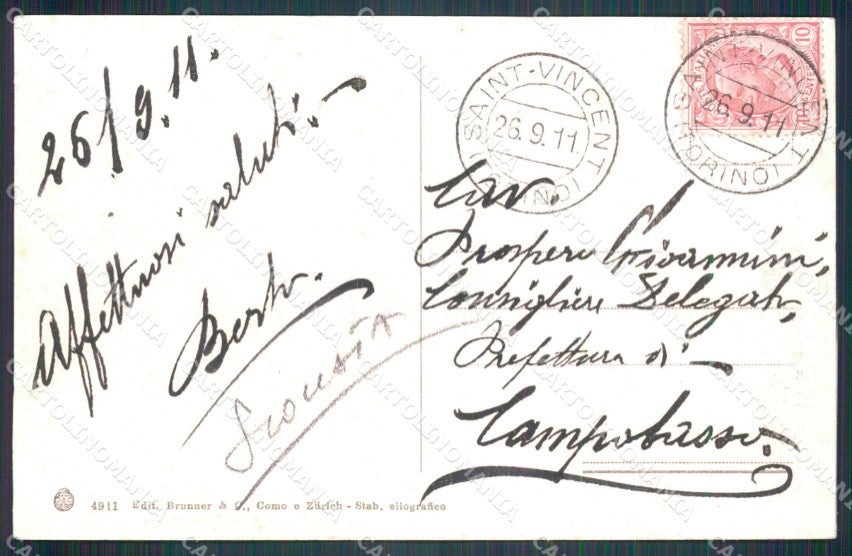 26/9.11.
Affettuosi saluti.
Berto.
SAINT-VINCENT
(TORINO)
26.9.11
10
SAINT-VINCENT
(TORINO)
26.9.11
Cav.
Prospero Giovannini,
Consigliere Delegato,
Prefettura di
Campobasso.
4911 Edit. Brunner & C., Como e Zürich - Stab. eliografico
CARTOLINOMANIA